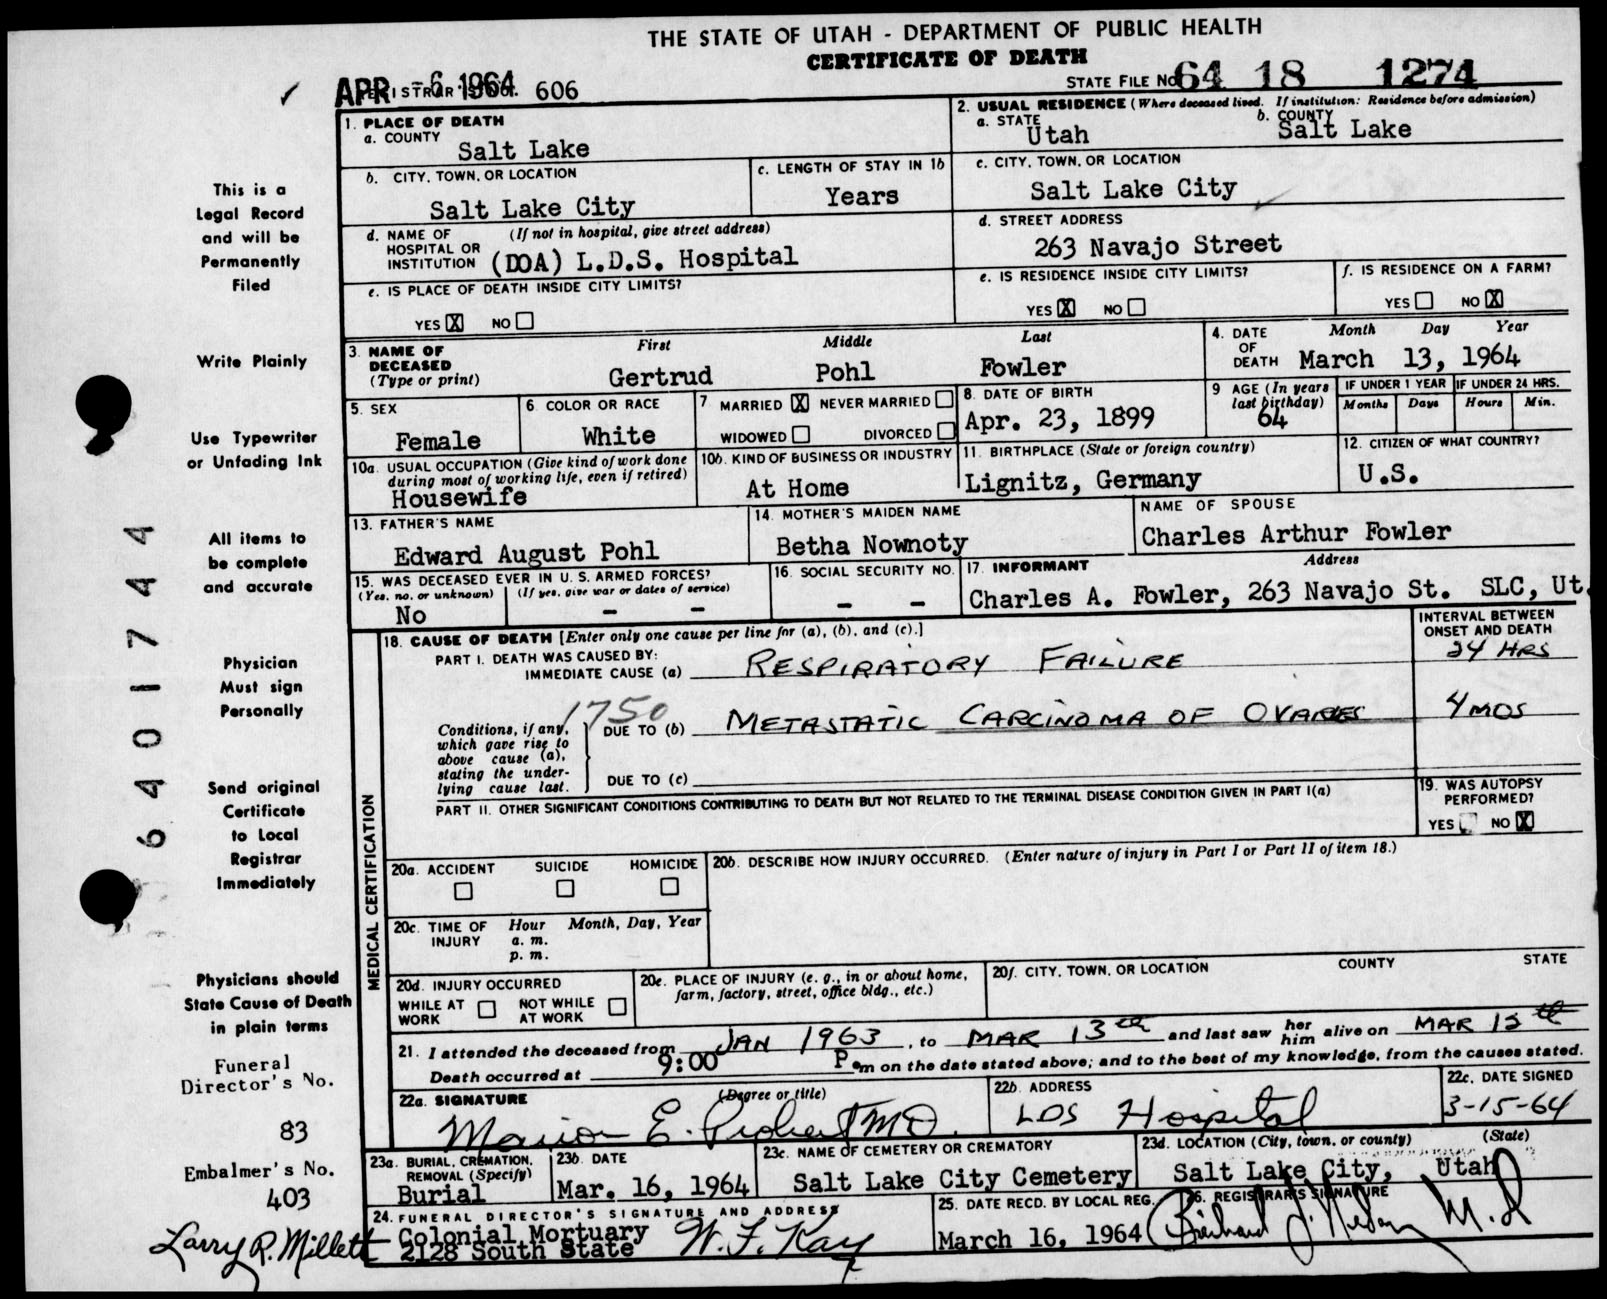 THE STATE OF UTAH - DEPARTMENT OF PUBLIC HEALTH
CERTIFICATE OF DEATH
APR -6 1964 606
STATE FILE NO. 64 18 1274
1. PLACE OF DEATH
a. COUNTY
Salt Lake
2. USUAL RESIDENCE (Where deceased lived. If institution: Residence before admission)
a. STATE Utah
b. COUNTY Salt Lake
b. CITY, TOWN, OR LOCATION
Salt Lake City
c. LENGTH OF STAY IN 1b
Years
c. CITY, TOWN, OR LOCATION
Salt Lake City
d. NAME OF HOSPITAL OR INSTITUTION (If not in hospital, give street address)
(DOA) L.D.S. Hospital
d. STREET ADDRESS
263 Navajo Street
e. IS PLACE OF DEATH INSIDE CITY LIMITS?
YES X NO
e. IS RESIDENCE INSIDE CITY LIMITS?
YES X NO
f. IS RESIDENCE ON A FARM?
YES NO X
3. NAME OF DECEASED (Type or print)
First Middle Last
Gertrud Pohl Fowler
4. DATE OF DEATH Month Day Year
March 13, 1964
5. SEX
Female
6. COLOR OR RACE
White
7. MARRIED X NEVER MARRIED
WIDOWED DIVORCED
8. DATE OF BIRTH
Apr. 23, 1899
9 AGE (In years last birthday)
64
IF UNDER 1 YEAR IF UNDER 24 HRS.
Months Days Hours Min.
10a. USUAL OCCUPATION (Give kind of work done during most of working life, even if retired)
Housewife
10b. KIND OF BUSINESS OR INDUSTRY
At Home
11. BIRTHPLACE (State or foreign country)
Lignitz, Germany
12. CITIZEN OF WHAT COUNTRY?
U.S.
13. FATHER'S NAME
Edward August Pohl
14. MOTHER'S MAIDEN NAME
Betha Nownoty
NAME OF SPOUSE
Charles Arthur Fowler
15. WAS DECEASED EVER IN U. S. ARMED FORCES?
(Yes, no, or unknown) (If yes, give war or dates of service)
No - -
16. SOCIAL SECURITY NO.
- -
17. INFORMANT Address
Charles A. Fowler, 263 Navajo St. SLC, Ut.
MEDICAL CERTIFICATION
18. CAUSE OF DEATH [Enter only one cause per line for (a), (b), and (c).]
INTERVAL BETWEEN ONSET AND DEATH
PART I. DEATH WAS CAUSED BY:
IMMEDIATE CAUSE (a) RESPIRATORY FAILURE 24 HRS
1750
Conditions, if any, which gave rise to above cause (a), stating the underlying cause last.
DUE TO (b) METASTATIC CARCINOMA OF OVARIES 4 MOS
DUE TO (c)
PART II. OTHER SIGNIFICANT CONDITIONS CONTRIBUTING TO DEATH BUT NOT RELATED TO THE TERMINAL DISEASE CONDITION GIVEN IN PART I(a)
19. WAS AUTOPSY PERFORMED?
YES NO X
20a. ACCIDENT SUICIDE HOMICIDE
20b. DESCRIBE HOW INJURY OCCURRED. (Enter nature of injury in Part I or Part II of item 18.)
20c. TIME OF INJURY Hour Month, Day, Year
a. m.
p. m.
20d. INJURY OCCURRED
WHILE AT WORK NOT WHILE AT WORK
20e. PLACE OF INJURY (e. g., in or about home, farm, factory, street, office bldg., etc.)
20f. CITY, TOWN, OR LOCATION COUNTY STATE
21. I attended the deceased from JAN 1963, to MAR 13th and last saw her him alive on MAR 12th
Death occurred at 9:00 P.m on the date stated above; and to the best of my knowledge, from the causes stated.
22a. SIGNATURE (Degree or title)
Marion E. Probert MD.
22b. ADDRESS
LDS Hospital
22c. DATE SIGNED
3-15-64
23a. BURIAL, CREMATION, REMOVAL (Specify)
Burial
23b. DATE
Mar. 16, 1964
23c. NAME OF CEMETERY OR CREMATORY
Salt Lake City Cemetery
23d. LOCATION (City, town, or county) (State)
Salt Lake City, Utah
24. FUNERAL DIRECTOR'S SIGNATURE AND ADDRESS
Colonial Mortuary
2128 South State W. F. Kay
25. DATE RECD. BY LOCAL REG.
March 16, 1964
26. REGISTRAR'S SIGNATURE
M.D
This is a
Legal Record
and will be
Permanently
Filed
Write Plainly
Use Typewriter
or Unfading Ink
All items to
be complete
and accurate
Physician
Must sign
Personally
Send original
Certificate
to Local
Registrar
Immediately
Physicians should
State Cause of Death
in plain terms
Funeral
Director's No.
83
Embalmer's No.
403
Larry R. Millett
6401744